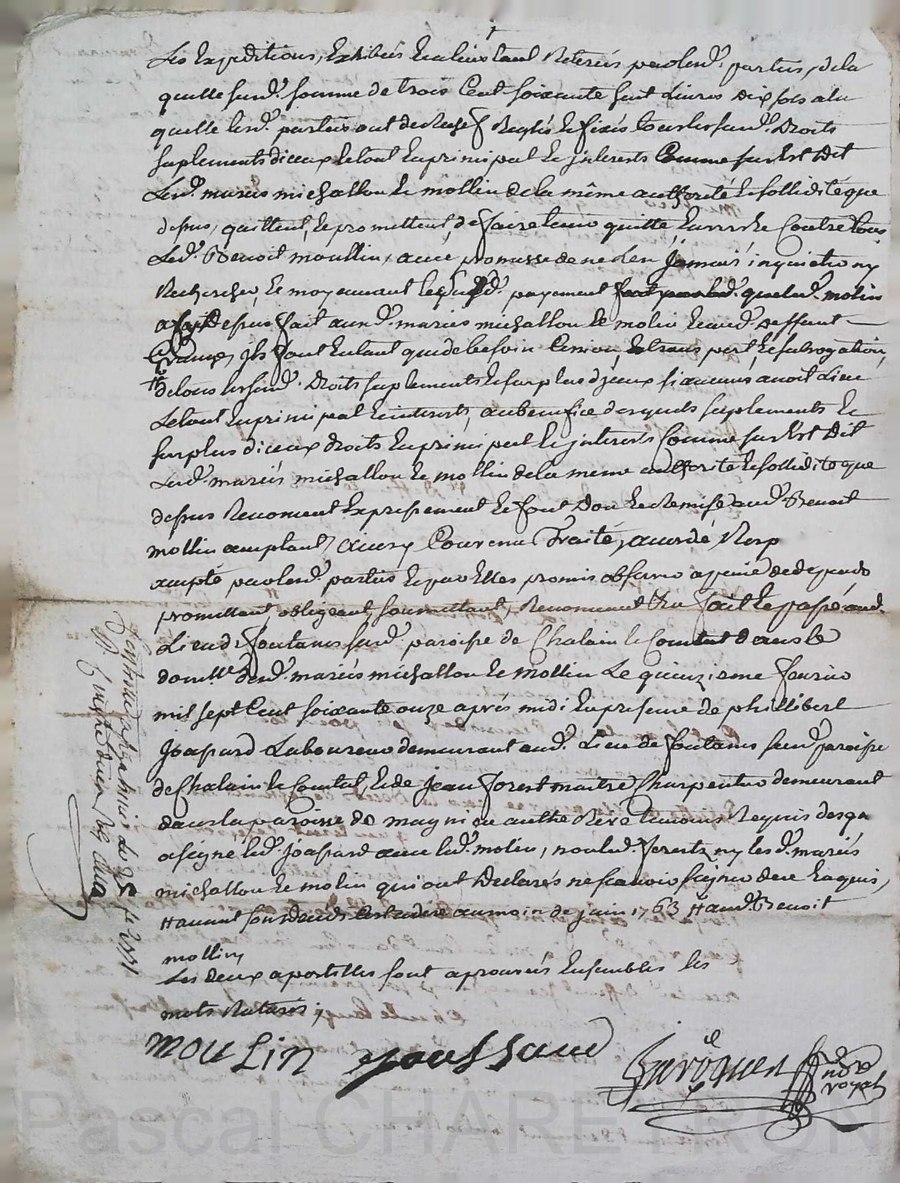 Les Expeditions, Exhibées Retirées par lesd. parties, de la
quelle susd. somme de trois Cent soixante sept Livres dix sols a la
quelle lesd. parties ont Reglés et fixés tous les susd. Droits
suplements diceux le tout En principal et jnterests Comme sus Est Dit
Lesd. mariés michallon et mollin de la même authorité et sollidité que
depsus, quittent, et promettent, de faire tenir quitte Envers et Contre tous
Led. Benoit moullin, avec promesse de ne Len jamais inquieter ny
Rechercher, et moyennant payement que led. molin
a depsus fait aux d. mariés michallon et molin deffunt
françois, jls font En tant que de besoin Cession et subrogation,
de tous lesSusd. Droits suplements et surplus djceux si aucuns avoit Lieu
Le tout En principal et interests, au benefice desquels suplements et
surplus diceux droits En principal et jnterests Comme sus Est Dit
Lesd. mariés michallon et mollin de la même authorité et sollidité que
depsus Renoncent Expressement et font Don et Remise aud. Benoit
mollin acceptant, Ainsy Convenu Traité, acordé Resp
accepté par lesd. parties et par Elles promis observer a peine de depends
promettant, obligeant, soumettant, Renoncent &a fait et passé aud.
Lieu de fontanes susd. paroisse de Chalain le Comtal dans le
domlle desd. mariés michallon et mollin Le quinzieme fevrier
mil sept Cent soixante onze après midi En presence de phillibert
Joapard Laboureur demeurant aud. Lieu de fontanes susd. paroisse
de Chalain le Comtal, et de Jean forest maitre Charpentier demeurant
dans la paroisse de magni
a signé led. joapard avec led. molin, non led. forest, ny lesd. mariés
michallon et molin qui ont Declarés ne scavoir signer de ce Enquis,
au mois de juin 1763 Benoit
mollin
Les deux apostilles sont aprouvés Ensembles les
mots Raturés ;
MOULIN joussaud
nore
royal
Pascal CHARETRON